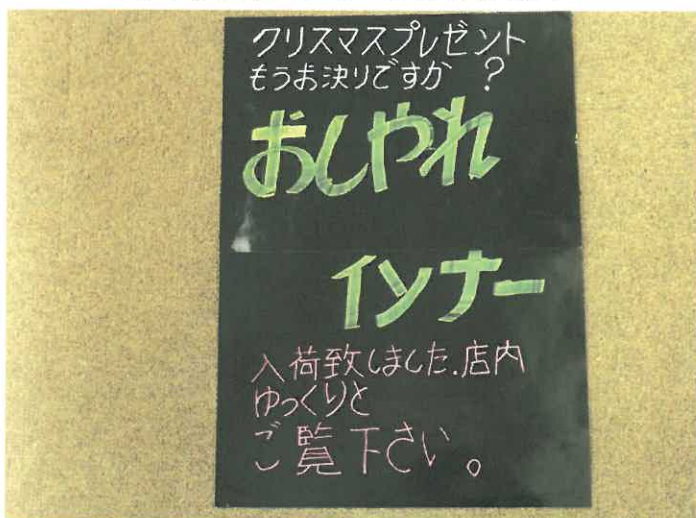 クリスマスプレゼント
もうお決りですか ?
おしゃれ
インナー
入荷致しました.店内
ゆっくりと
ご覧下さい。